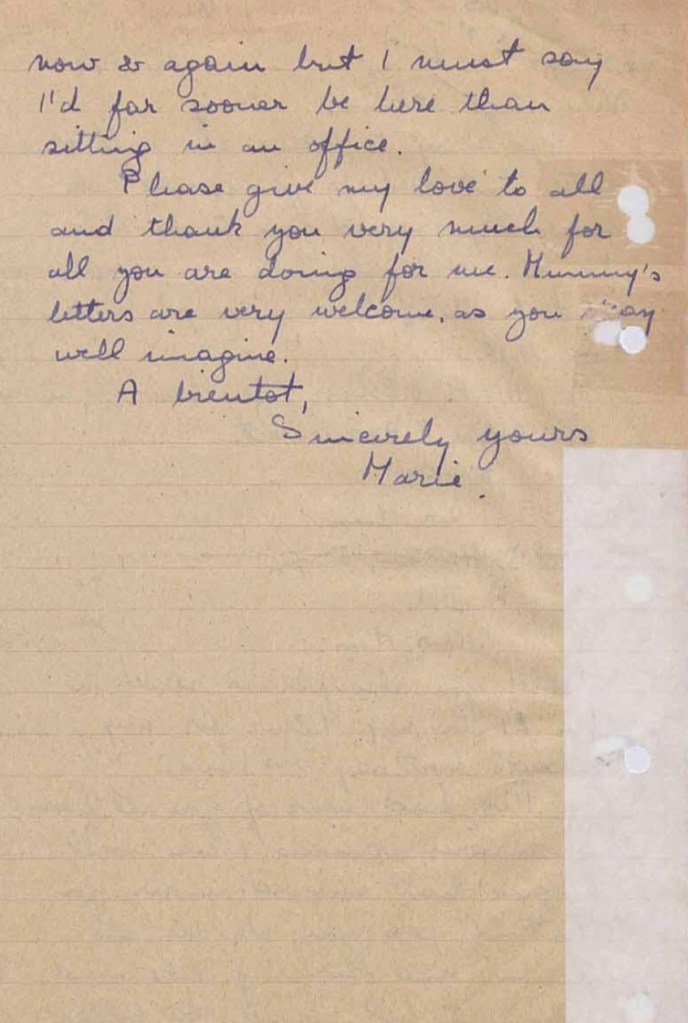 now & again but I must say
I'd far sooner be here than
sitting in an office.
Please give my love to all
and thank you very much for
all you are doing for me. Mummy's
letters are very welcome, as you may
well imagine.
A bientot,
Sincerely yours
Marie.